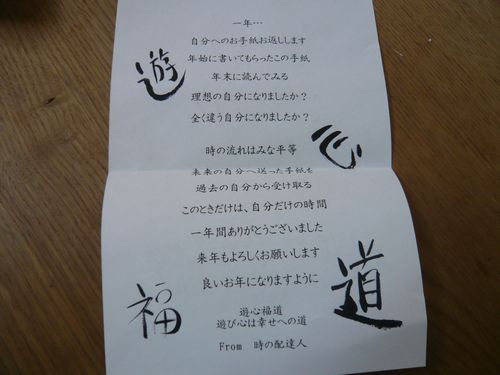 一年…
自分へのお手紙お返しします
年始に書いてもらったこの手紙
年末に読んでみる
理想の自分になりましたか？
全く違う自分になりましたか？
時の流れはみな平等
未来の自分へ送った手紙を
過去の自分から受け取る
このときだけは、自分だけの時間
一年間ありがとうございました
来年もよろしくお願いします
良いお年になりますように
遊心福道
遊び心は幸せへの道
From 時の配達人
遊
心
福
道